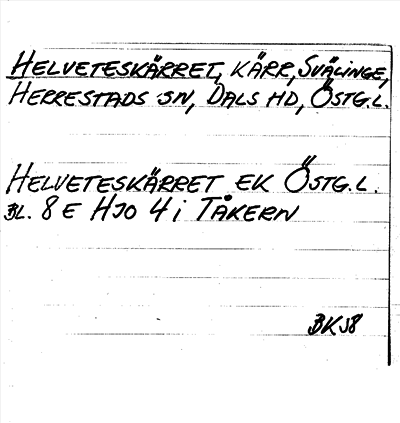 HELVETESKÄRRET, KÄRR, SVÄLINGE,
HERRESTADS SN, DALS HD, ÖSTG.L.
HELVETESKÄRRET EK ÖSTG.L.
BL. 8 E HJO 4 i TÅKERN
BK58